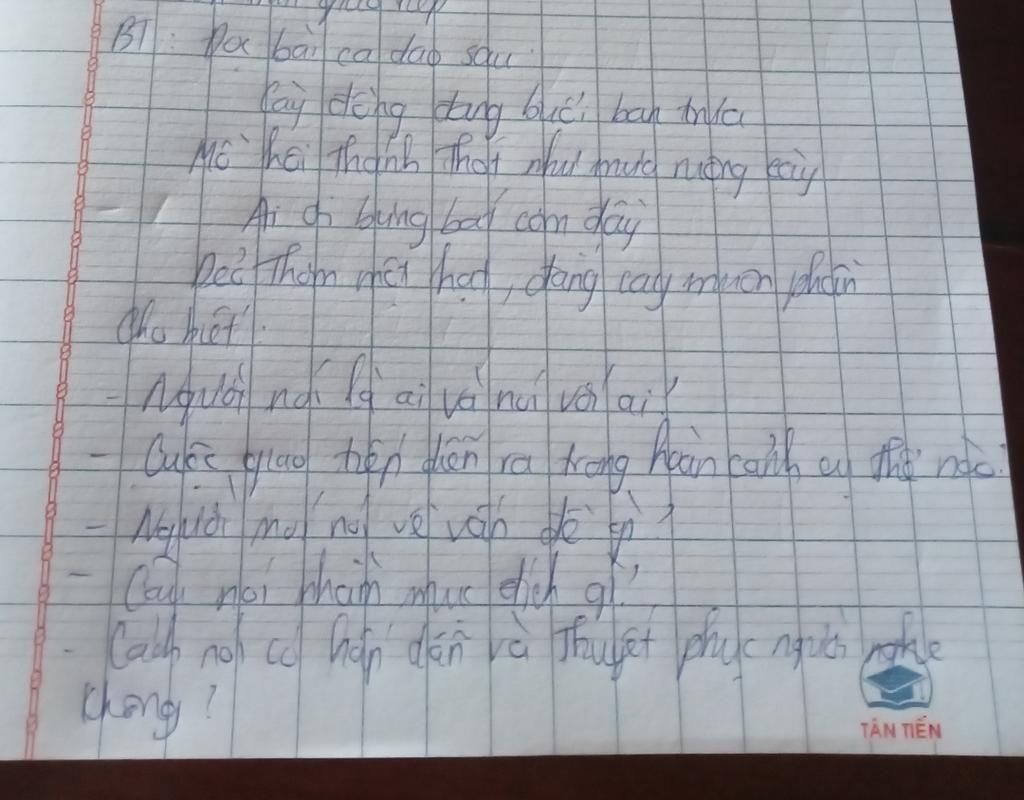 BT: Đọc bài ca dao sau
Cày đồng đang buổi ban trưa
Mồ hôi thánh thót như mưa ruộng cày
Ai ơi bưng bát cơm đầy
Dẻo thơm một hạt, đắng cay muôn phần
Cho biết:
- Người nói là ai và nói với ai?
- Cuộc giao tiếp diễn ra trong hoàn cảnh cụ thể nào?
- Người nói về vấn đề gì?
- Câu nói nhằm mục đích gì?
- Cách nói có hấp dẫn và thuyết phục người nghe
không?
TÂN TIẾN